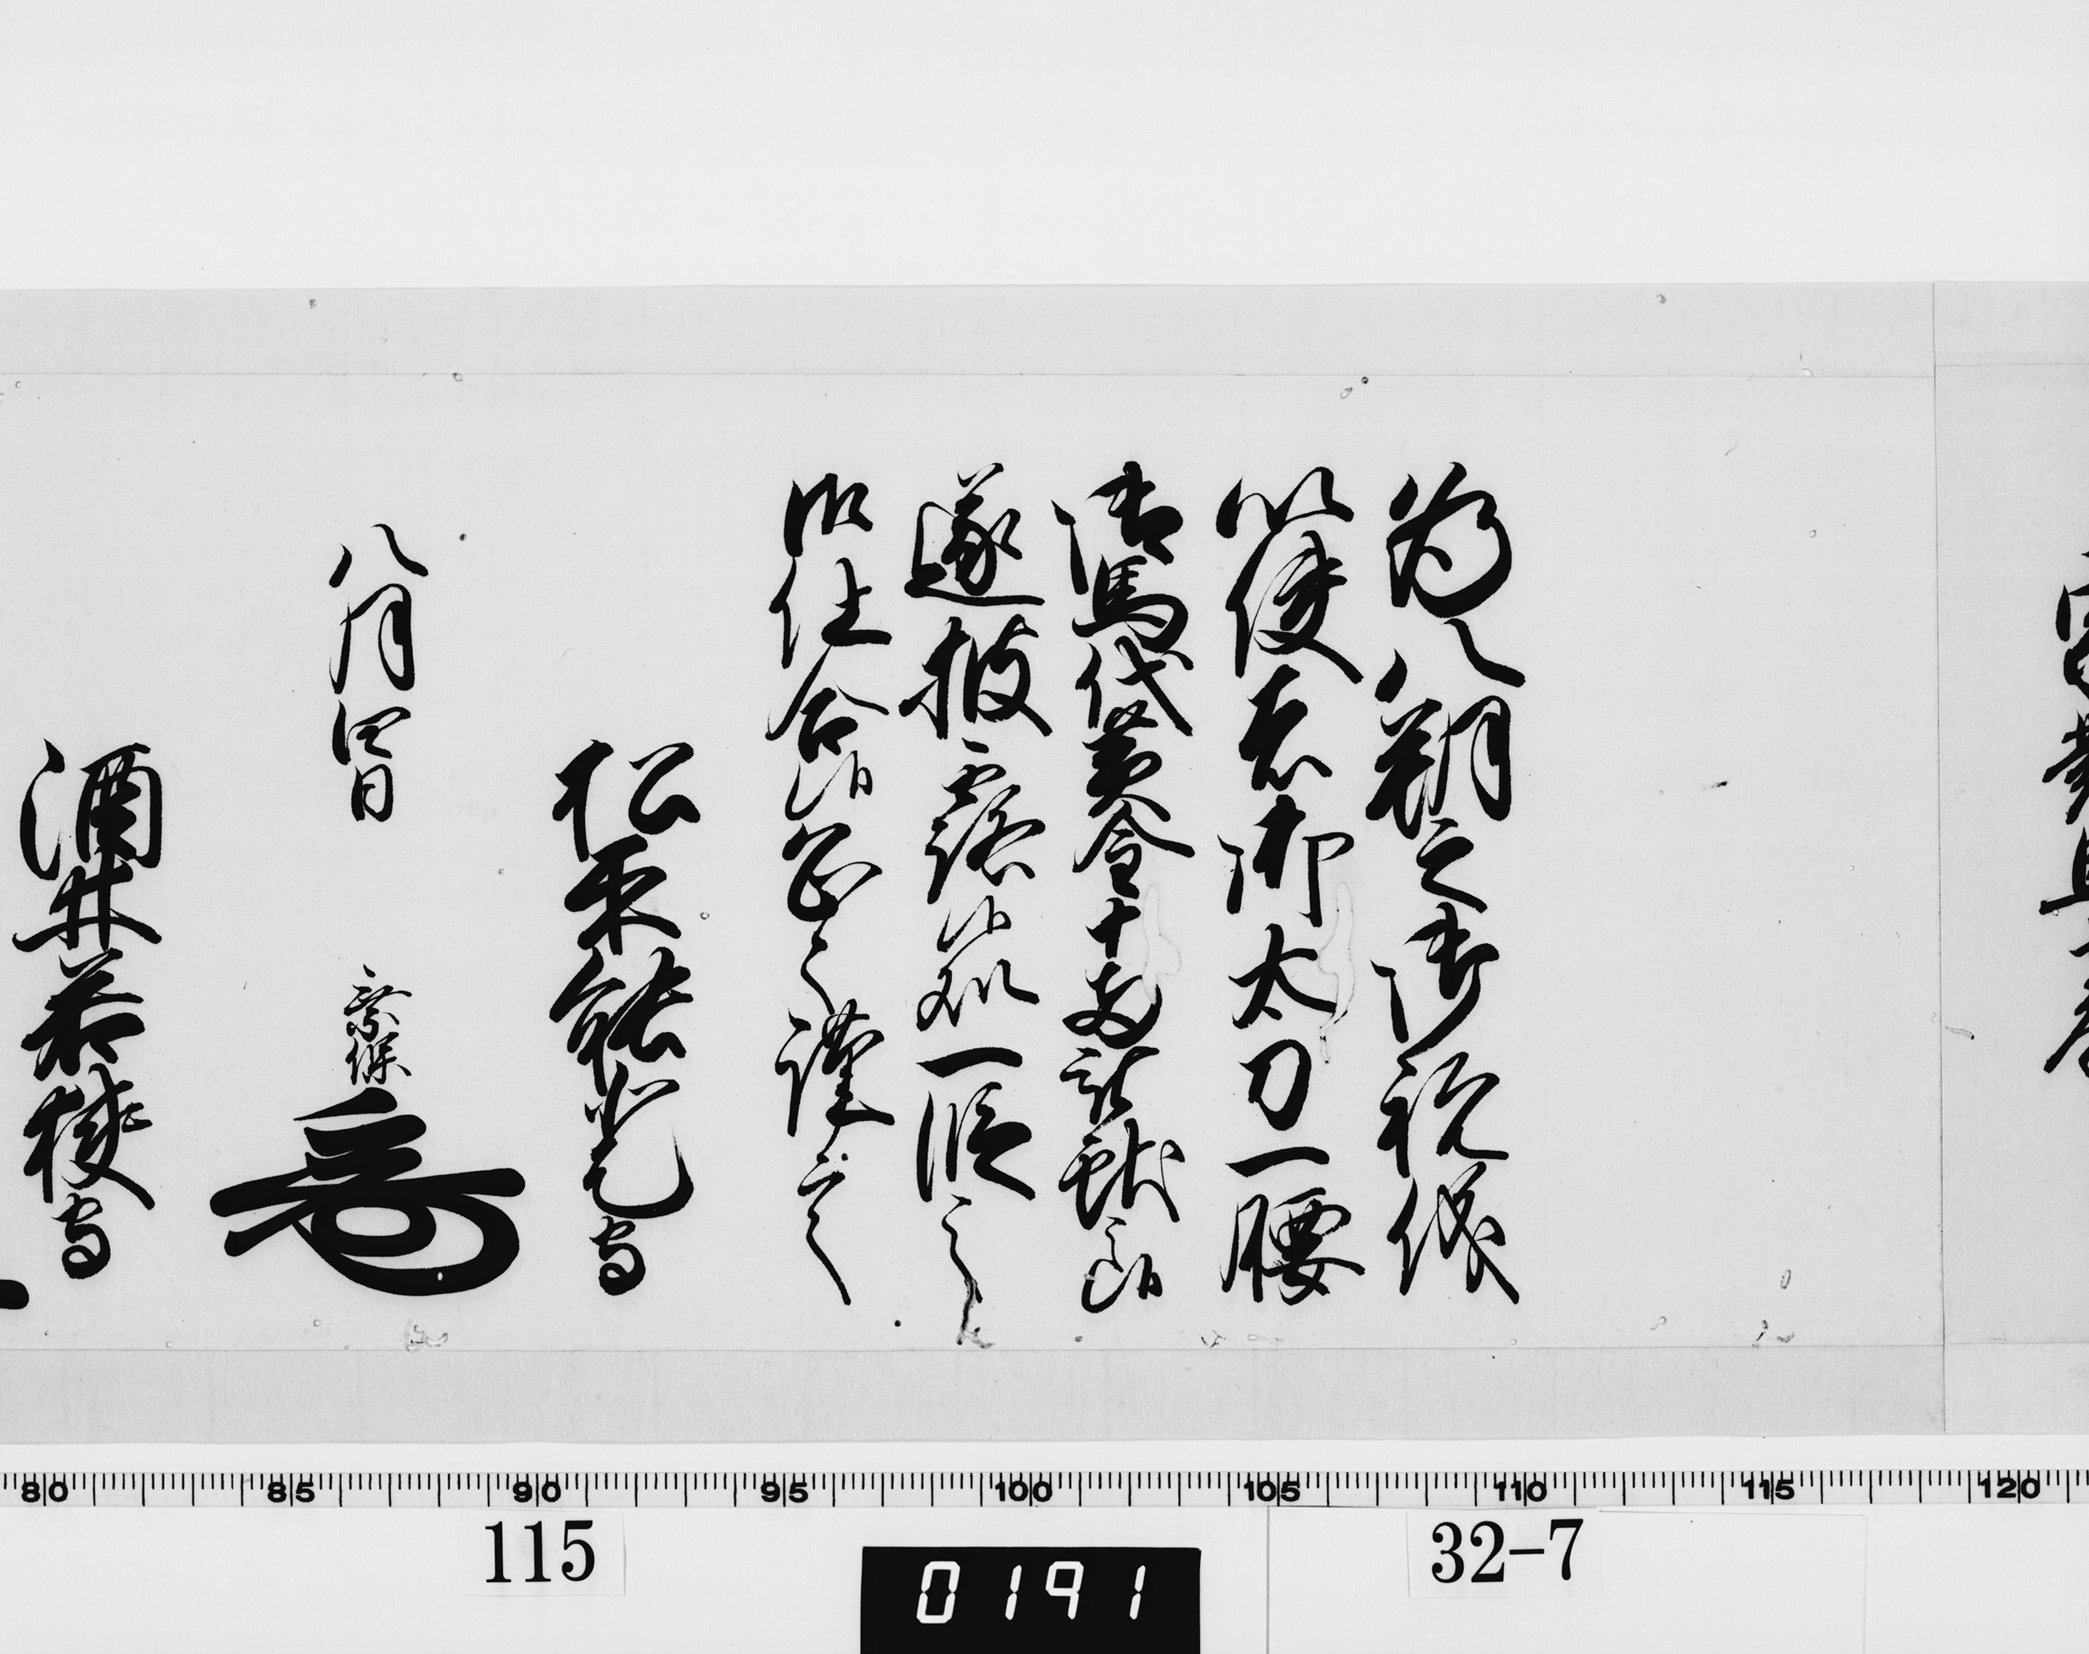 為八朔之御祝儀
以使者御太刀一腰
御馬代黄金十両被献候
遂披露候処一段之
御仕合候恐々謹言
松平能登守
八月四日 乗保
酒井若狭守
80 85 90 95 100 105 110 115 120
115
32-7
0191